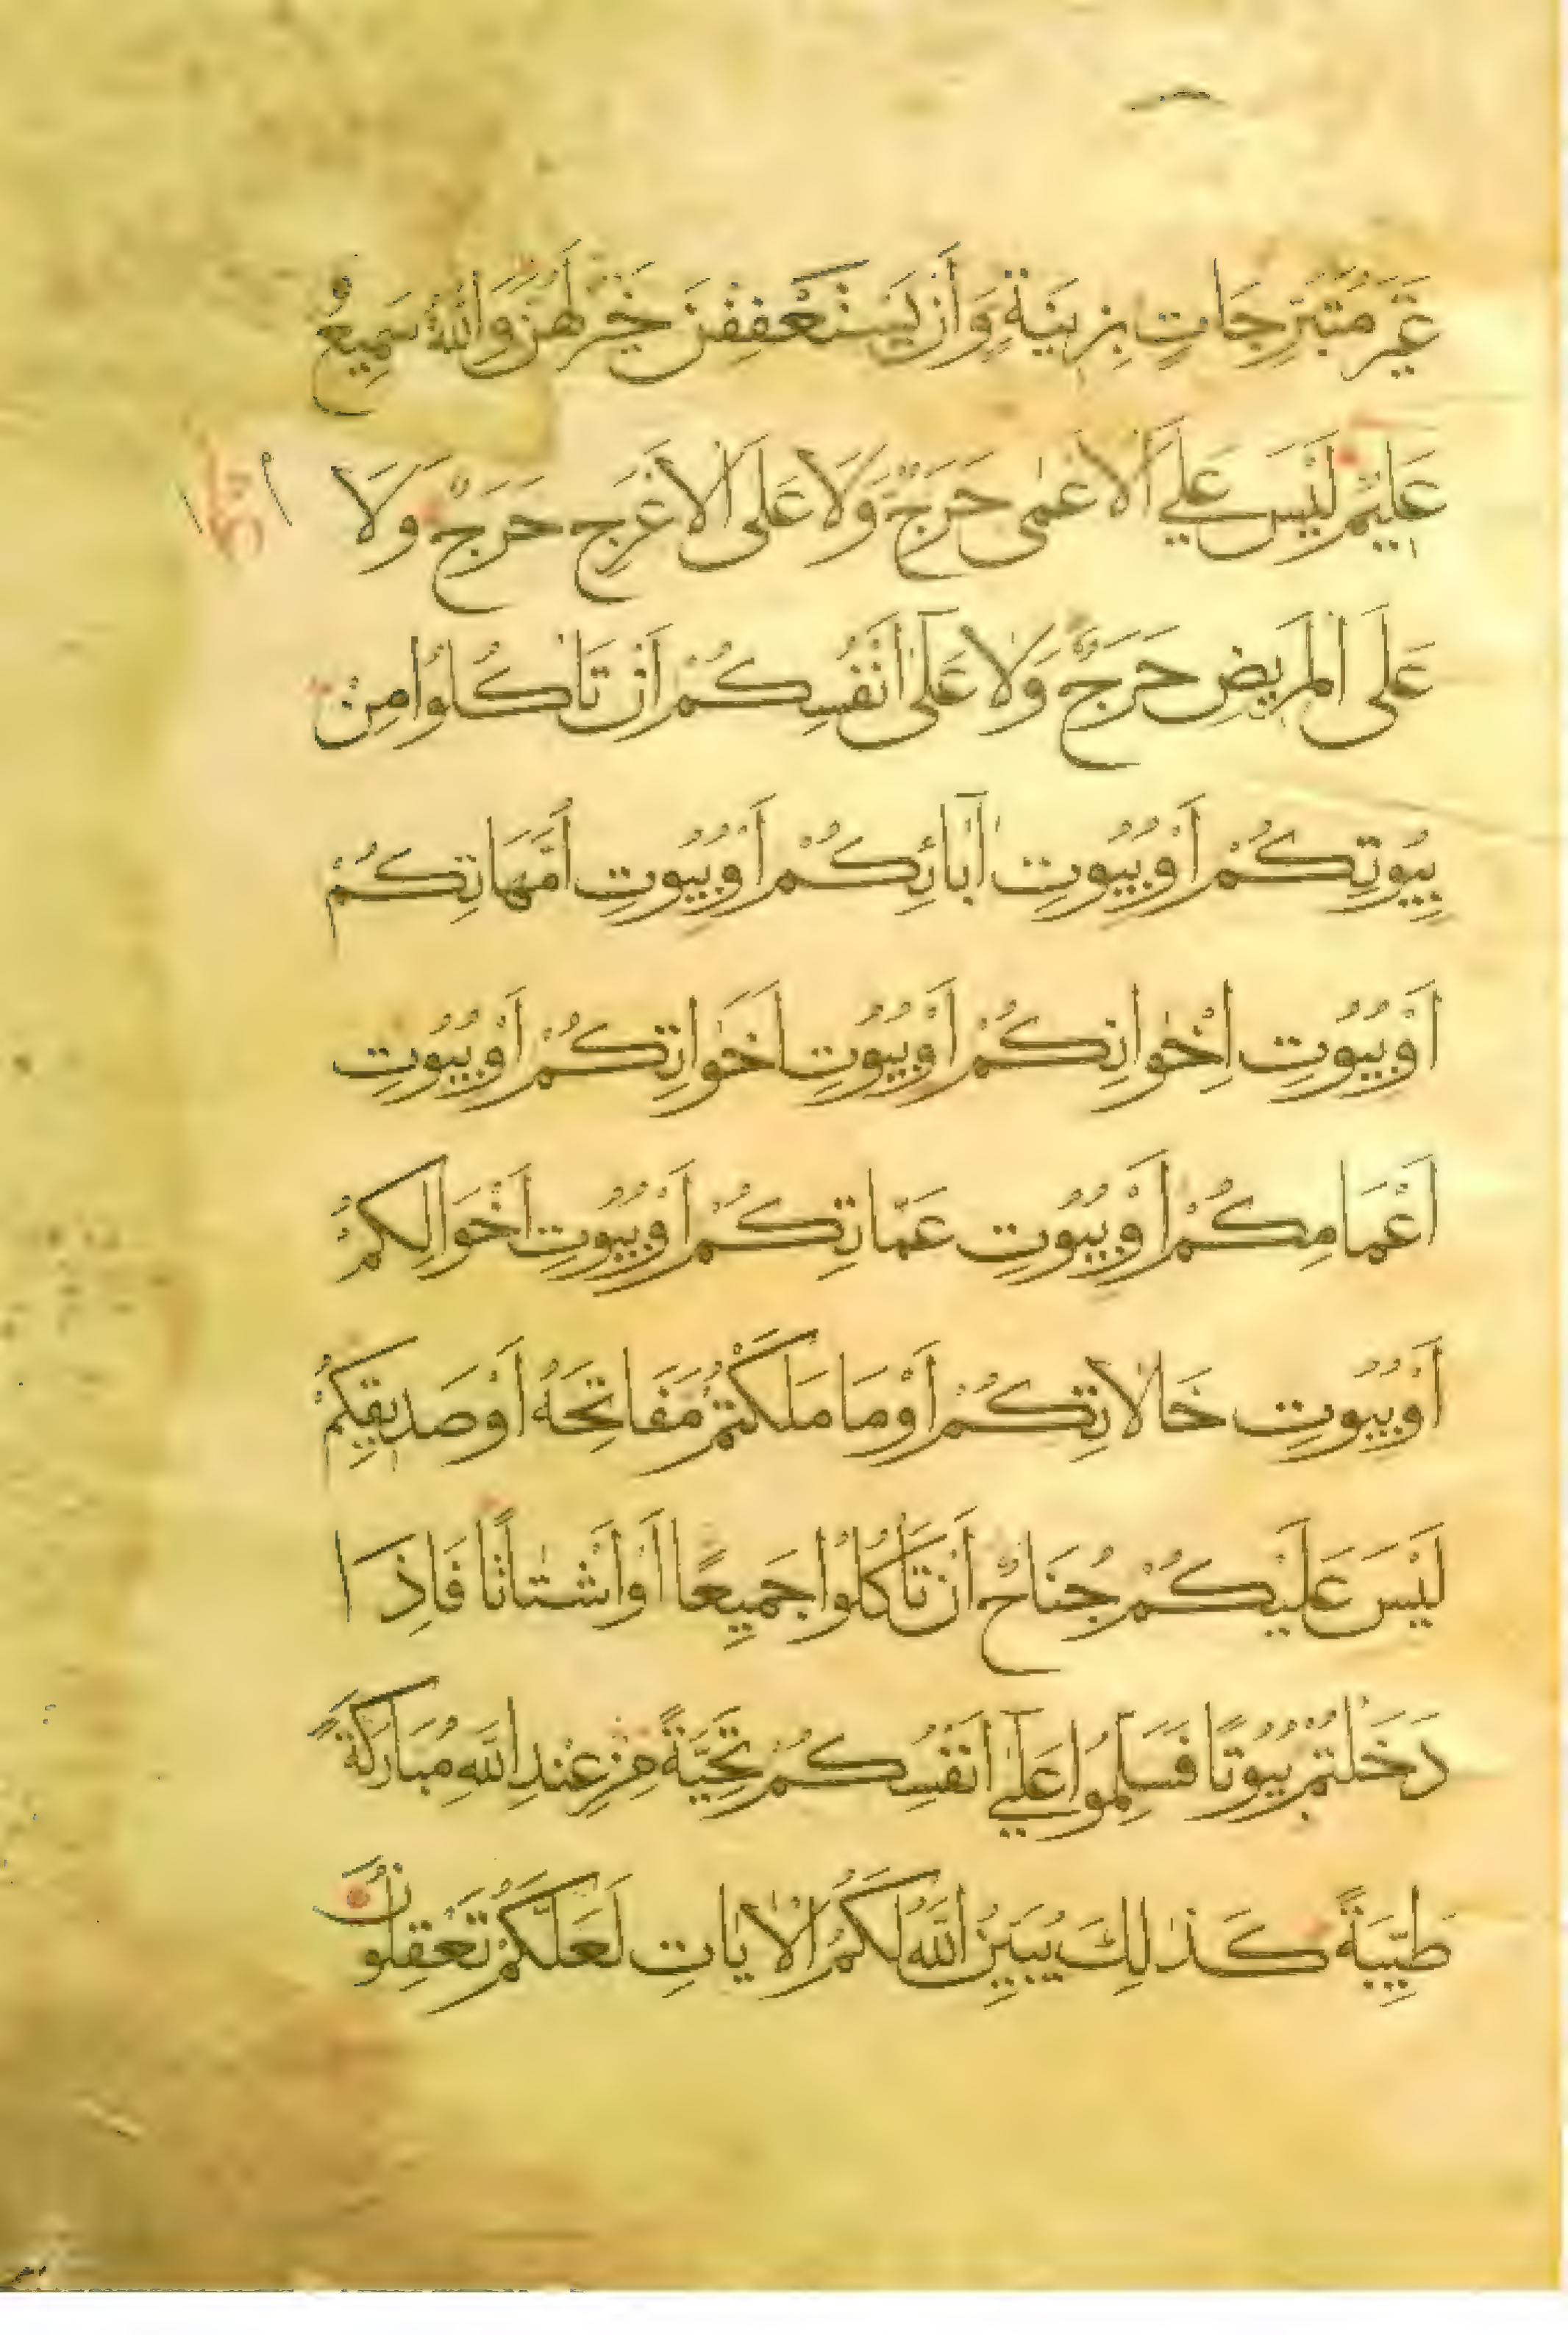 غَيْرَ مُتَبَرِّجَاتٍ بِزِينَةٍ وَأَنْ يَسْتَعْفِفْنَ خَيْرٌ لَهُنَّ وَاللَّهُ سَمِيعٌ
عَلِيمٌ لَيْسَ عَلَى الْأَعْمَى حَرَجٌ وَلَا عَلَى الْأَعْرَجِ حَرَجٌ وَلَا
عَلَى الْمَرِيضِ حَرَجٌ وَلَا عَلَى أَنْفُسِكُمْ أَنْ تَأْكُلُوا مِنْ
بُيُوتِكُمْ أَوْ بُيُوتِ آبَائِكُمْ أَوْ بُيُوتِ أُمَّهَاتِكُمْ
أَوْ بُيُوتِ إِخْوَانِكُمْ أَوْ بُيُوتِ أَخَوَاتِكُمْ أَوْ بُيُوتِ
أَعْمَامِكُمْ أَوْ بُيُوتِ عَمَّاتِكُمْ أَوْ بُيُوتِ أَخْوَالِكُمْ
أَوْ بُيُوتِ خَالَاتِكُمْ أَوْ مَا مَلَكْتُمْ مَفَاتِحَهُ أَوْ صَدِيقِكُمْ
لَيْسَ عَلَيْكُمْ جُنَاحٌ أَنْ تَأْكُلُوا جَمِيعًا أَوْ أَشْتَاتًا فَإِذَا
دَخَلْتُمْ بُيُوتًا فَسَلِّمُوا عَلَى أَنْفُسِكُمْ تَحِيَّةً مِنْ عِنْدِ اللَّهِ مُبَارَكَةً
طَيِّبَةً كَذَلِكَ يُبَيِّنُ اللَّهُ لَكُمُ الْآيَاتِ لَعَلَّكُمْ تَعْقِلُونَ